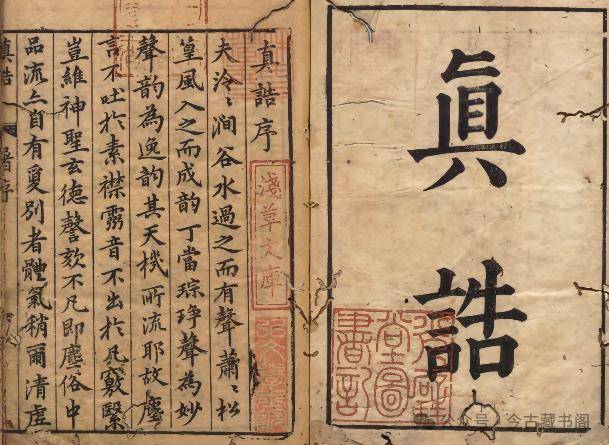 眞誥
堂圖
書記
公众号 · 今古藏书阁
真誥序
淺草文庫
夫泠〻澗谷水過之而有聲蕭〻松
篁風入之而成韵丁當琮琤聲為妙
聲韵為逸韵其天機所流耶故塵
言不吐於素襟雰音不出於凡竅繄
豈維神聖玄德謦欬不凡即塵俗中
品流亦自有夐別者體氣稍爾清虛
真誥
序